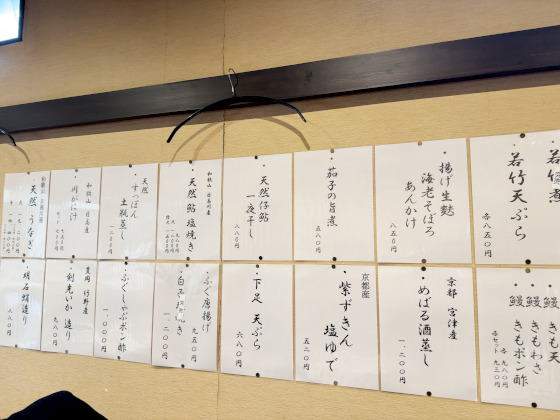 若竹煮
若竹天ぷら
各八五〇円
・揚げ生麩
海老そぼろ
あんかけ
八五〇円
・茄子の旨煮
五八〇円
・天然仔鮎
一夜干し
八八〇円
和歌山 日高川産
・天然 鮎 塩焼き
天然
・すっぽん
土瓶蒸し
和歌山 日高産
・川がに汁
・天然 うなぎ
・鰻 きも天
・鰻 きもわさ
・鰻 きもポン酢
各 九八〇円
各セット 九三〇円
京都 宮津産
・めばる酒蒸し
一、二〇〇円
京都産
・紫ずきん
塩ゆで
五二〇円
・下足 天ぷら
六八〇円
・ふぐ唐揚げ
九五〇円
一、二〇〇円
・ふぐしゃぶポン酢
一、〇〇〇円
・剣先いか 造り
九八〇円
・明石蛸造り
八八〇円